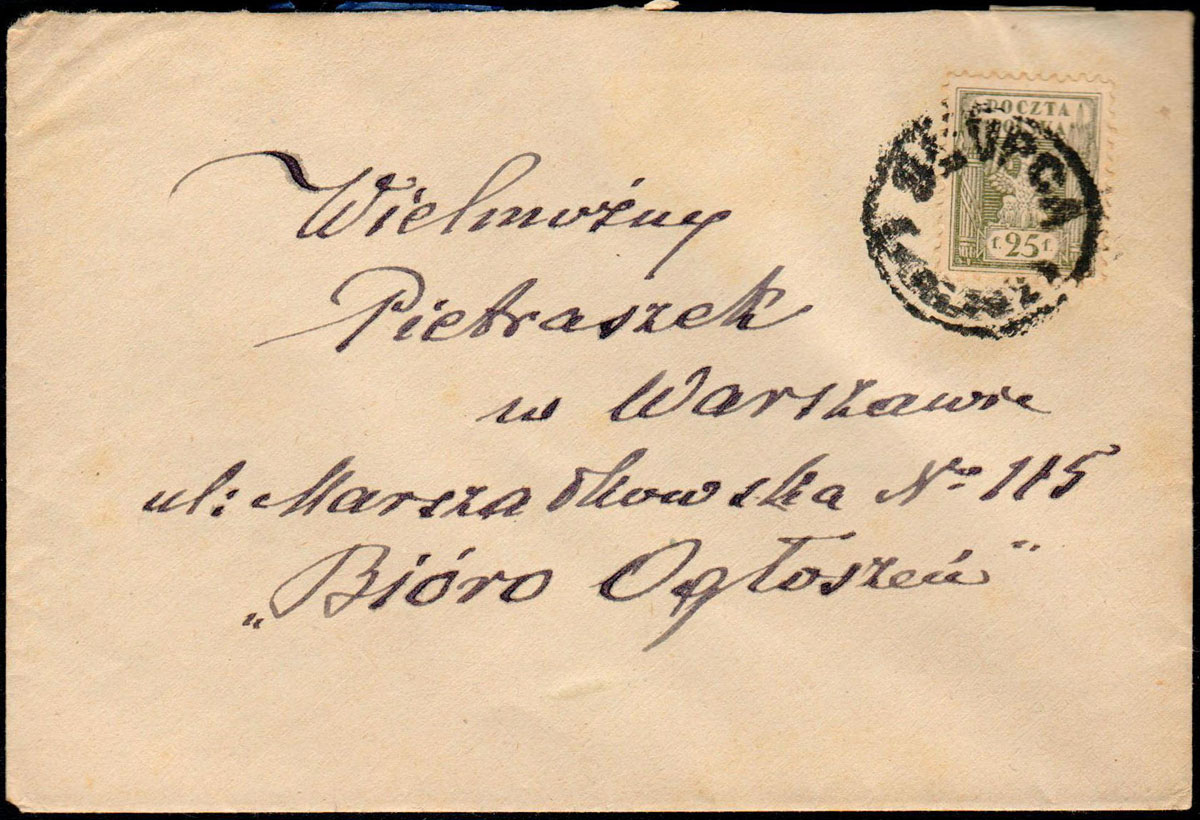 POCZTA
POLSKA
SŁUPCA
f. 25 f.
Wielmożny
Pietraszek
w Warszawie
ul: Marszałkowska No 115
„Bióro Ogłoszeń"